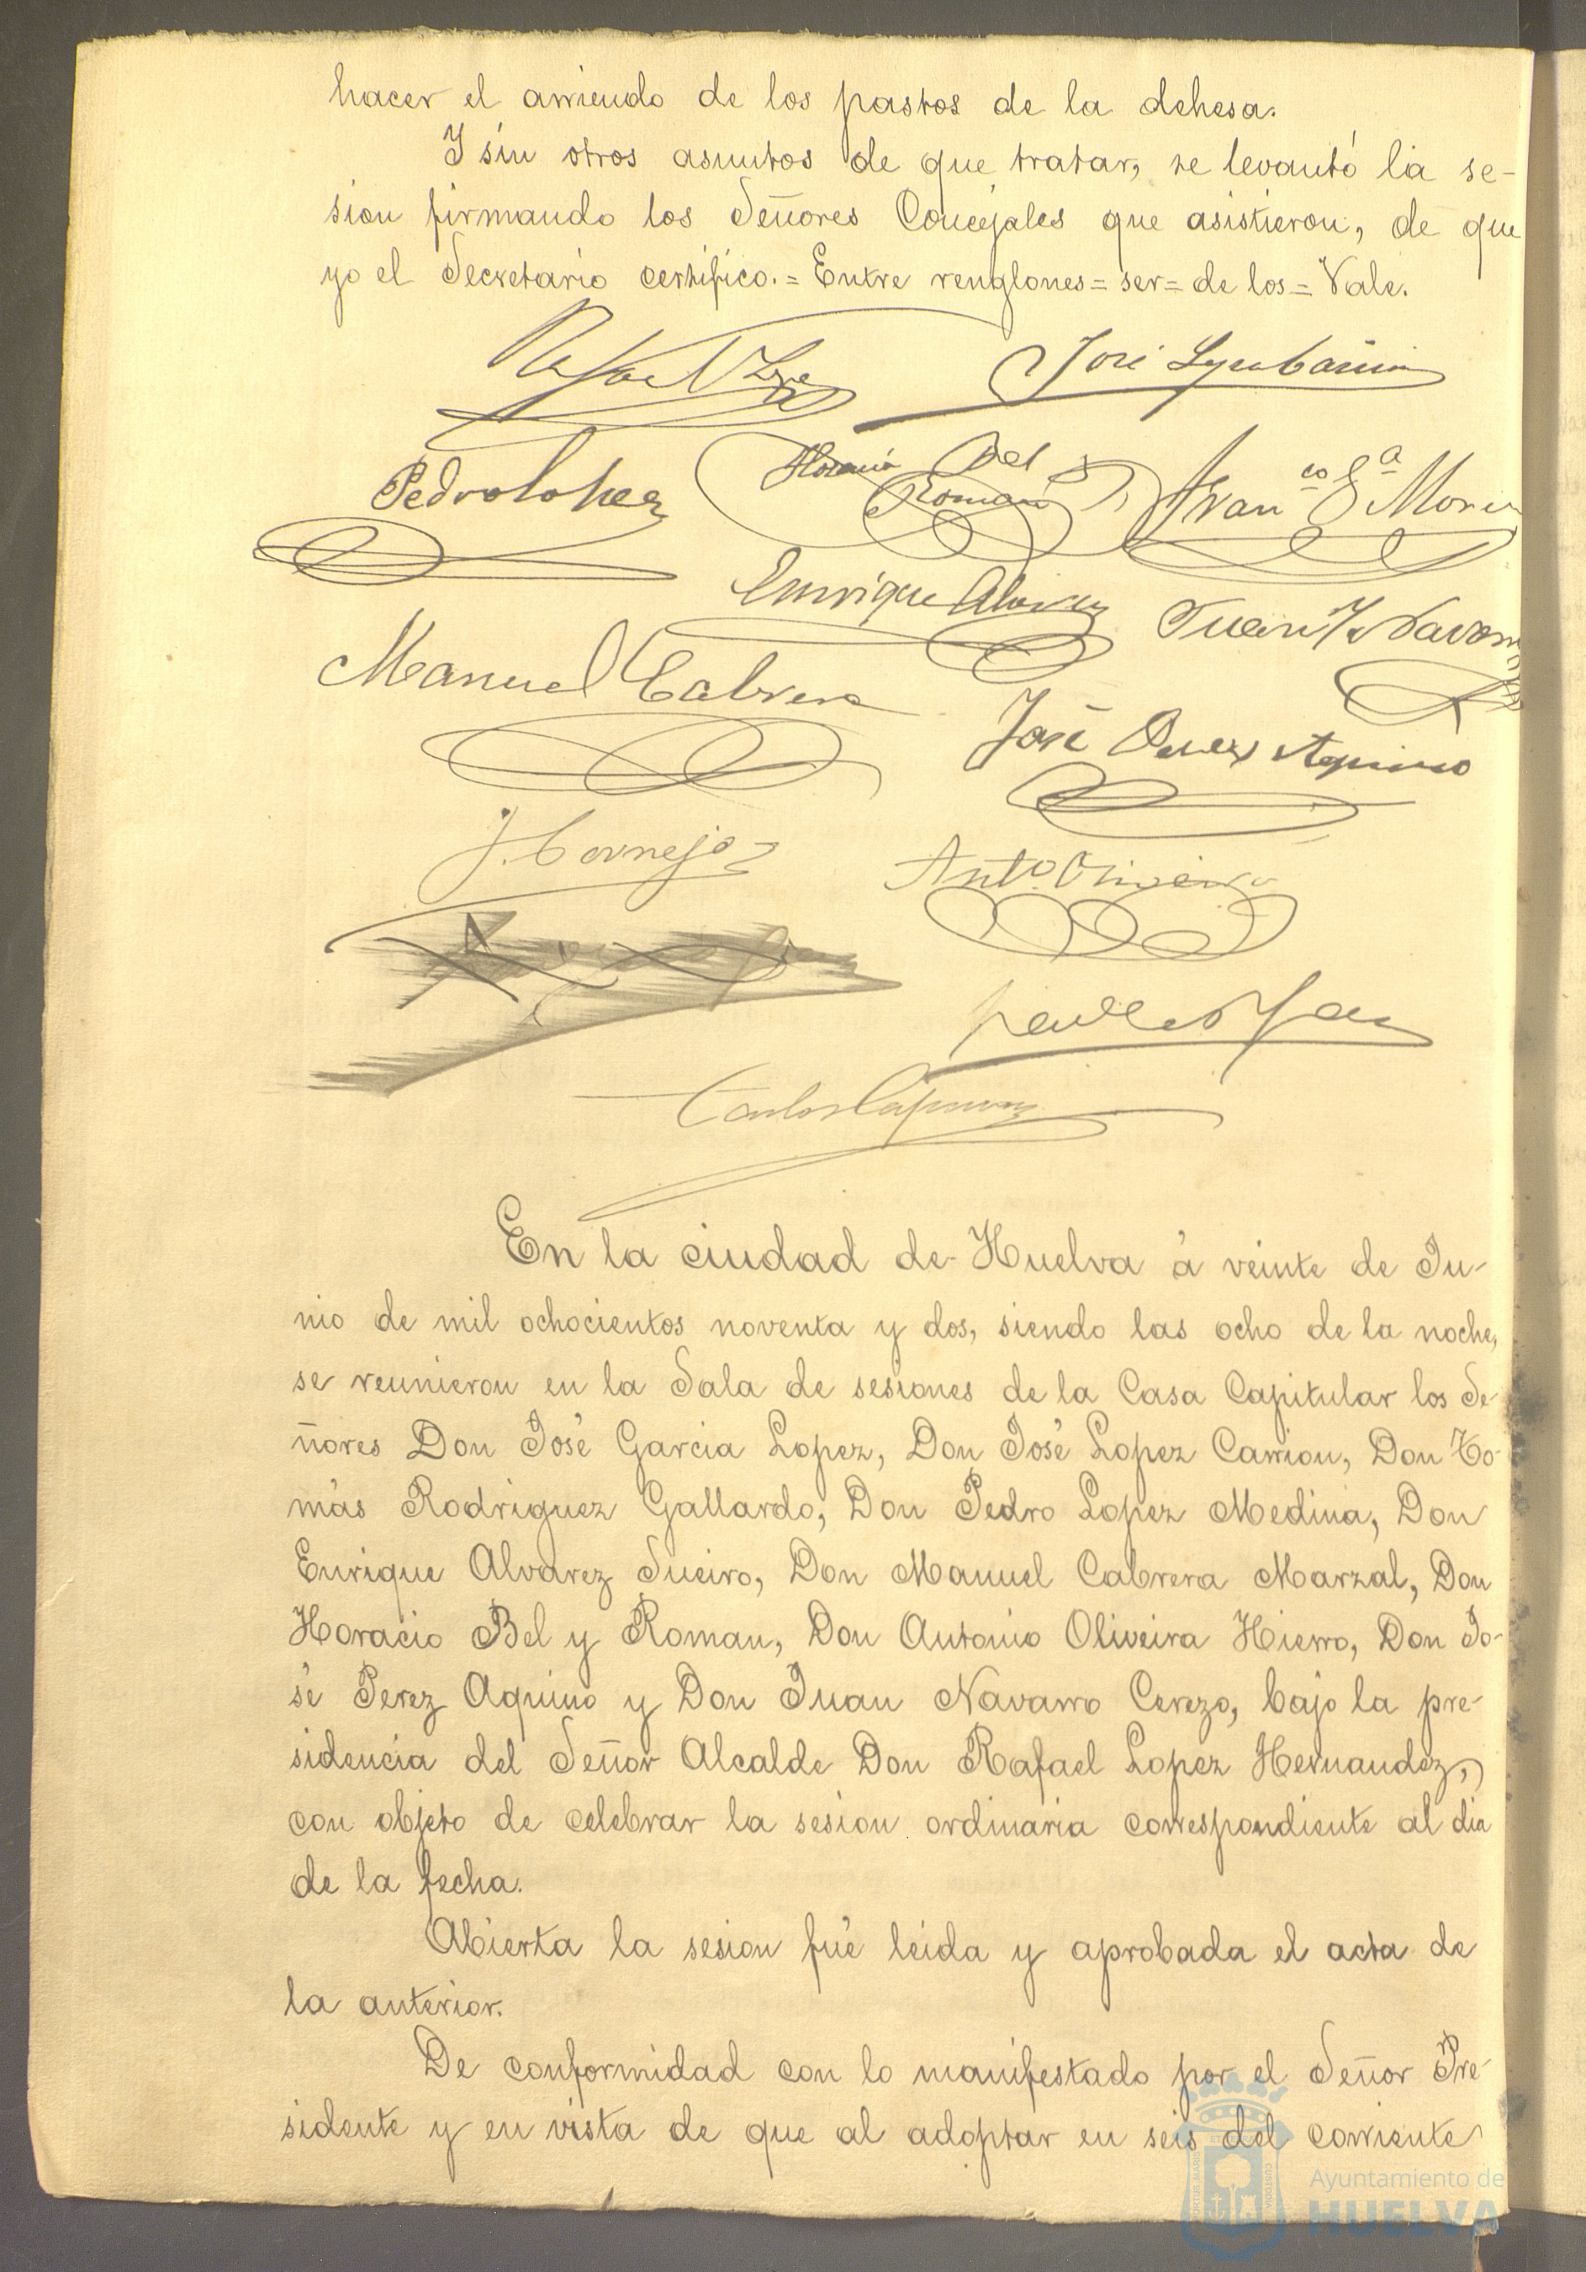 hacer el arriendo de los pastos de la dehesa.
Y sin otros asuntos de que tratar, se levantó la se-
sion firmando los Señores Concejales que asistieron, de que
yo el Secretario certifico.= Entre renglones= ser= de los= Vale.
Rafael
José
Pedro Lopez
Horacio Bel
Roman
Fran^co G^a Mor
Enrique Alvarez
Juan Navarro
Manuel Cabrera
José Perez Aquino
J. Cornejo
Ant^o Oliveira
Carlos
En la ciudad de Huelva á veinte de Ju-
nio de mil ochocientos noventa y dos, siendo las ocho de la noche,
se reunieron en la Sala de sesiones de la Casa Capitular los Se-
ñores Don José Garcia Lopez, Don José Lopez Carrion, Don To-
más Rodriguez Gallardo, Don Pedro Lopez Medina, Don
Enrique Alvarez Sueiro, Don Manuel Cabrera Marzal, Don
Horacio Bel y Roman, Don Antonio Oliveira Hierro, Don Jo-
sé Perez Aquino y Don Juan Navarro Cerezo, bajo la pre-
sidencia del Señor Alcalde Don Rafael Lopez Hernandez,
con objeto de celebrar la sesion ordinaria correspondiente al dia
de la fecha.
Abierta la sesion fué leida y aprobada el acta de
la anterior.
De conformidad con lo manifestado por el Señor Pre-
sidente y en vista de que al adoptar en seis del corriente
Ayuntamiento de
HUELVA